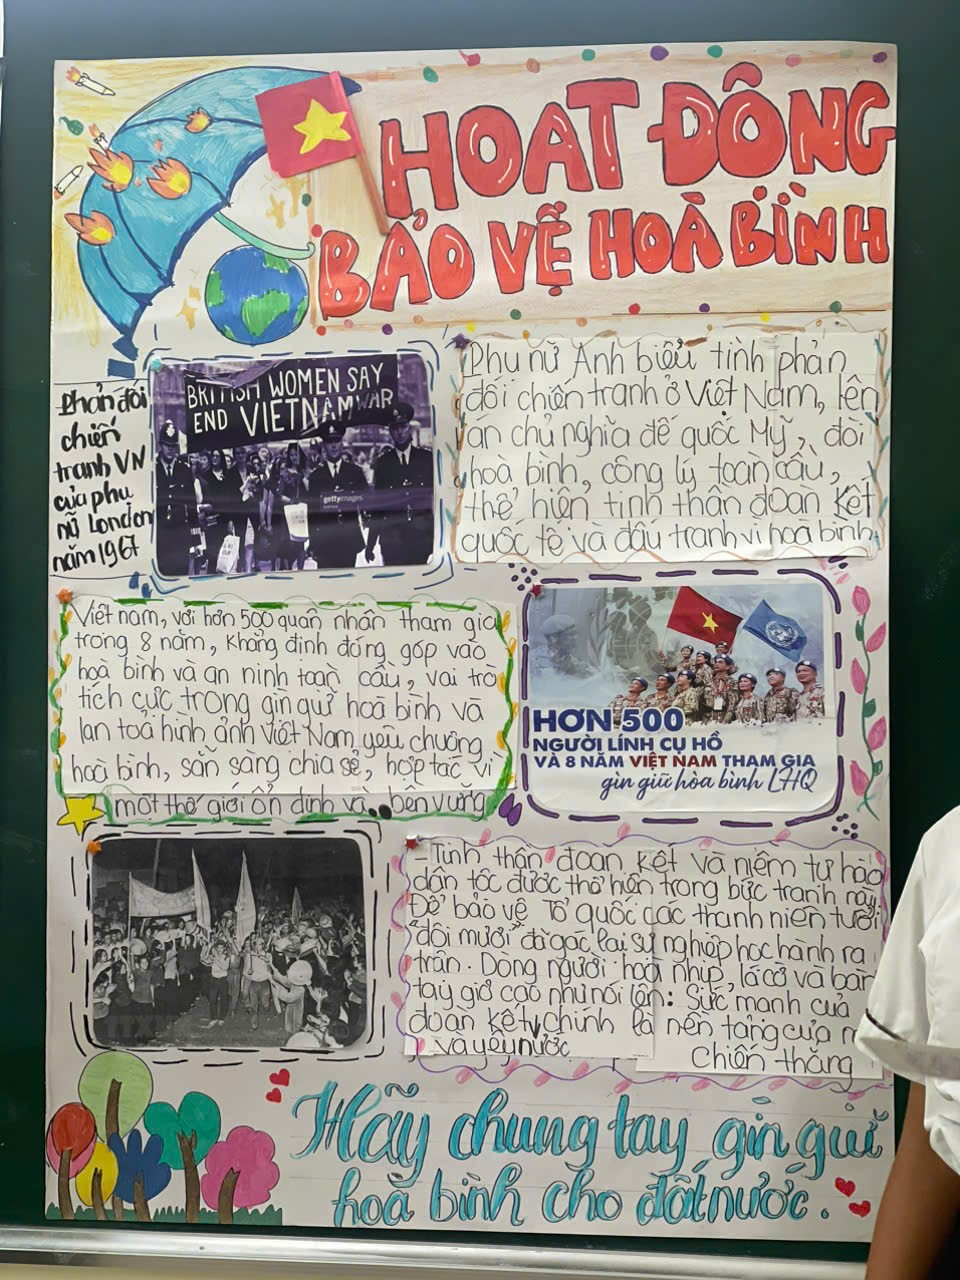 HOẠT ĐỘNG
BẢO VỆ HOÀ BÌNH
Phản đối
chiến
tranh VN
của phụ
nữ London
năm 1967
BRITISH WOMEN SAY
END VIETNAM WAR
gettyimages
Phụ nữ Anh biểu tình phản
đối chiến tranh ở Việt Nam, lên
án chủ nghĩa đế quốc Mỹ, đòi
hoà bình, công lý toàn cầu,
thể hiện tinh thần đoàn kết
quốc tế và đấu tranh vì hoà bình
Việt nam, với hơn 500 quân nhân tham gia
trong 8 năm, khẳng định đóng góp vào
hoà bình và an ninh toàn cầu, vai trò
tích cực trong gìn giữ hoà bình và
lan toả hình ảnh Việt Nam yêu chuộng
hoà bình, sẵn sàng chia sẻ, hợp tác vì
một thế giới ổn định và bền vững
HƠN 500
NGƯỜI LÍNH CỤ HỒ
VÀ 8 NĂM VIỆT NAM THAM GIA
gìn giữ hòa bình LHQ
- Tinh thần đoàn kết và niềm tự hào
dân tộc được thể hiện trong bức tranh này.
Để bảo vệ Tổ quốc các thanh niên tuổi
"đôi mươi" đã gác lại sự nghiệp học hành ra
trận. Dòng người hoà nhịp, lá cờ và bàn
tay giơ cao như nói lên: Sức mạnh của
đoàn kết chính là nền tảng của
và yêu nước chiến thắng
Hãy chung tay gìn giữ
hoà bình cho đất nước.